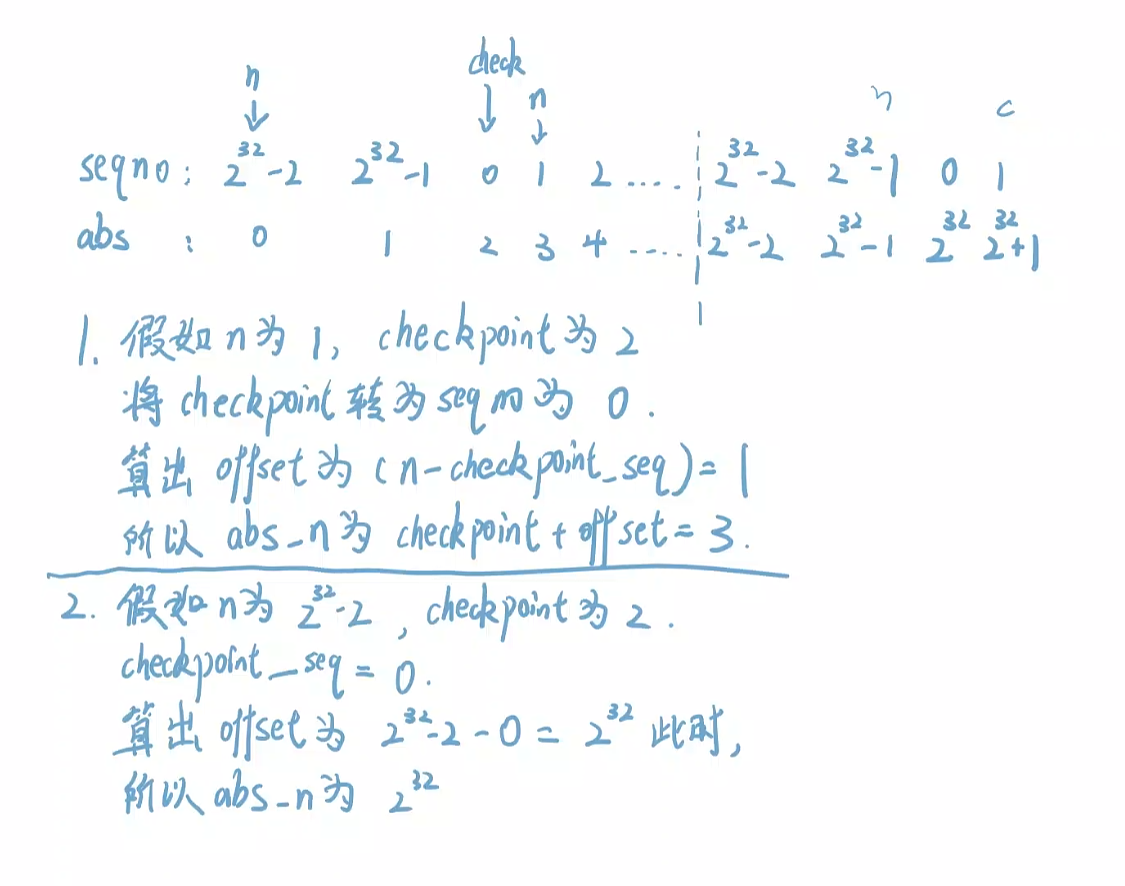 n check n n c
seqno: 2^32-2 2^32-1 0 1 2 .... 2^32-2 2^32-1 0 1
abs : 0 1 2 3 4 .... 2^32-2 2^32-1 2^32 2^32+1
1. 假如n为1, checkpoint为2
将checkpoint转为seqno为0.
算出offset为(n-checkpoint_seq)=1
所以abs_n为checkpoint+offset=3.
2. 假如n为2^32-2, checkpoint为2.
checkpoint_seq=0.
算出offset为2^32-2-0=2^32此时,
所以abs_n为2^32